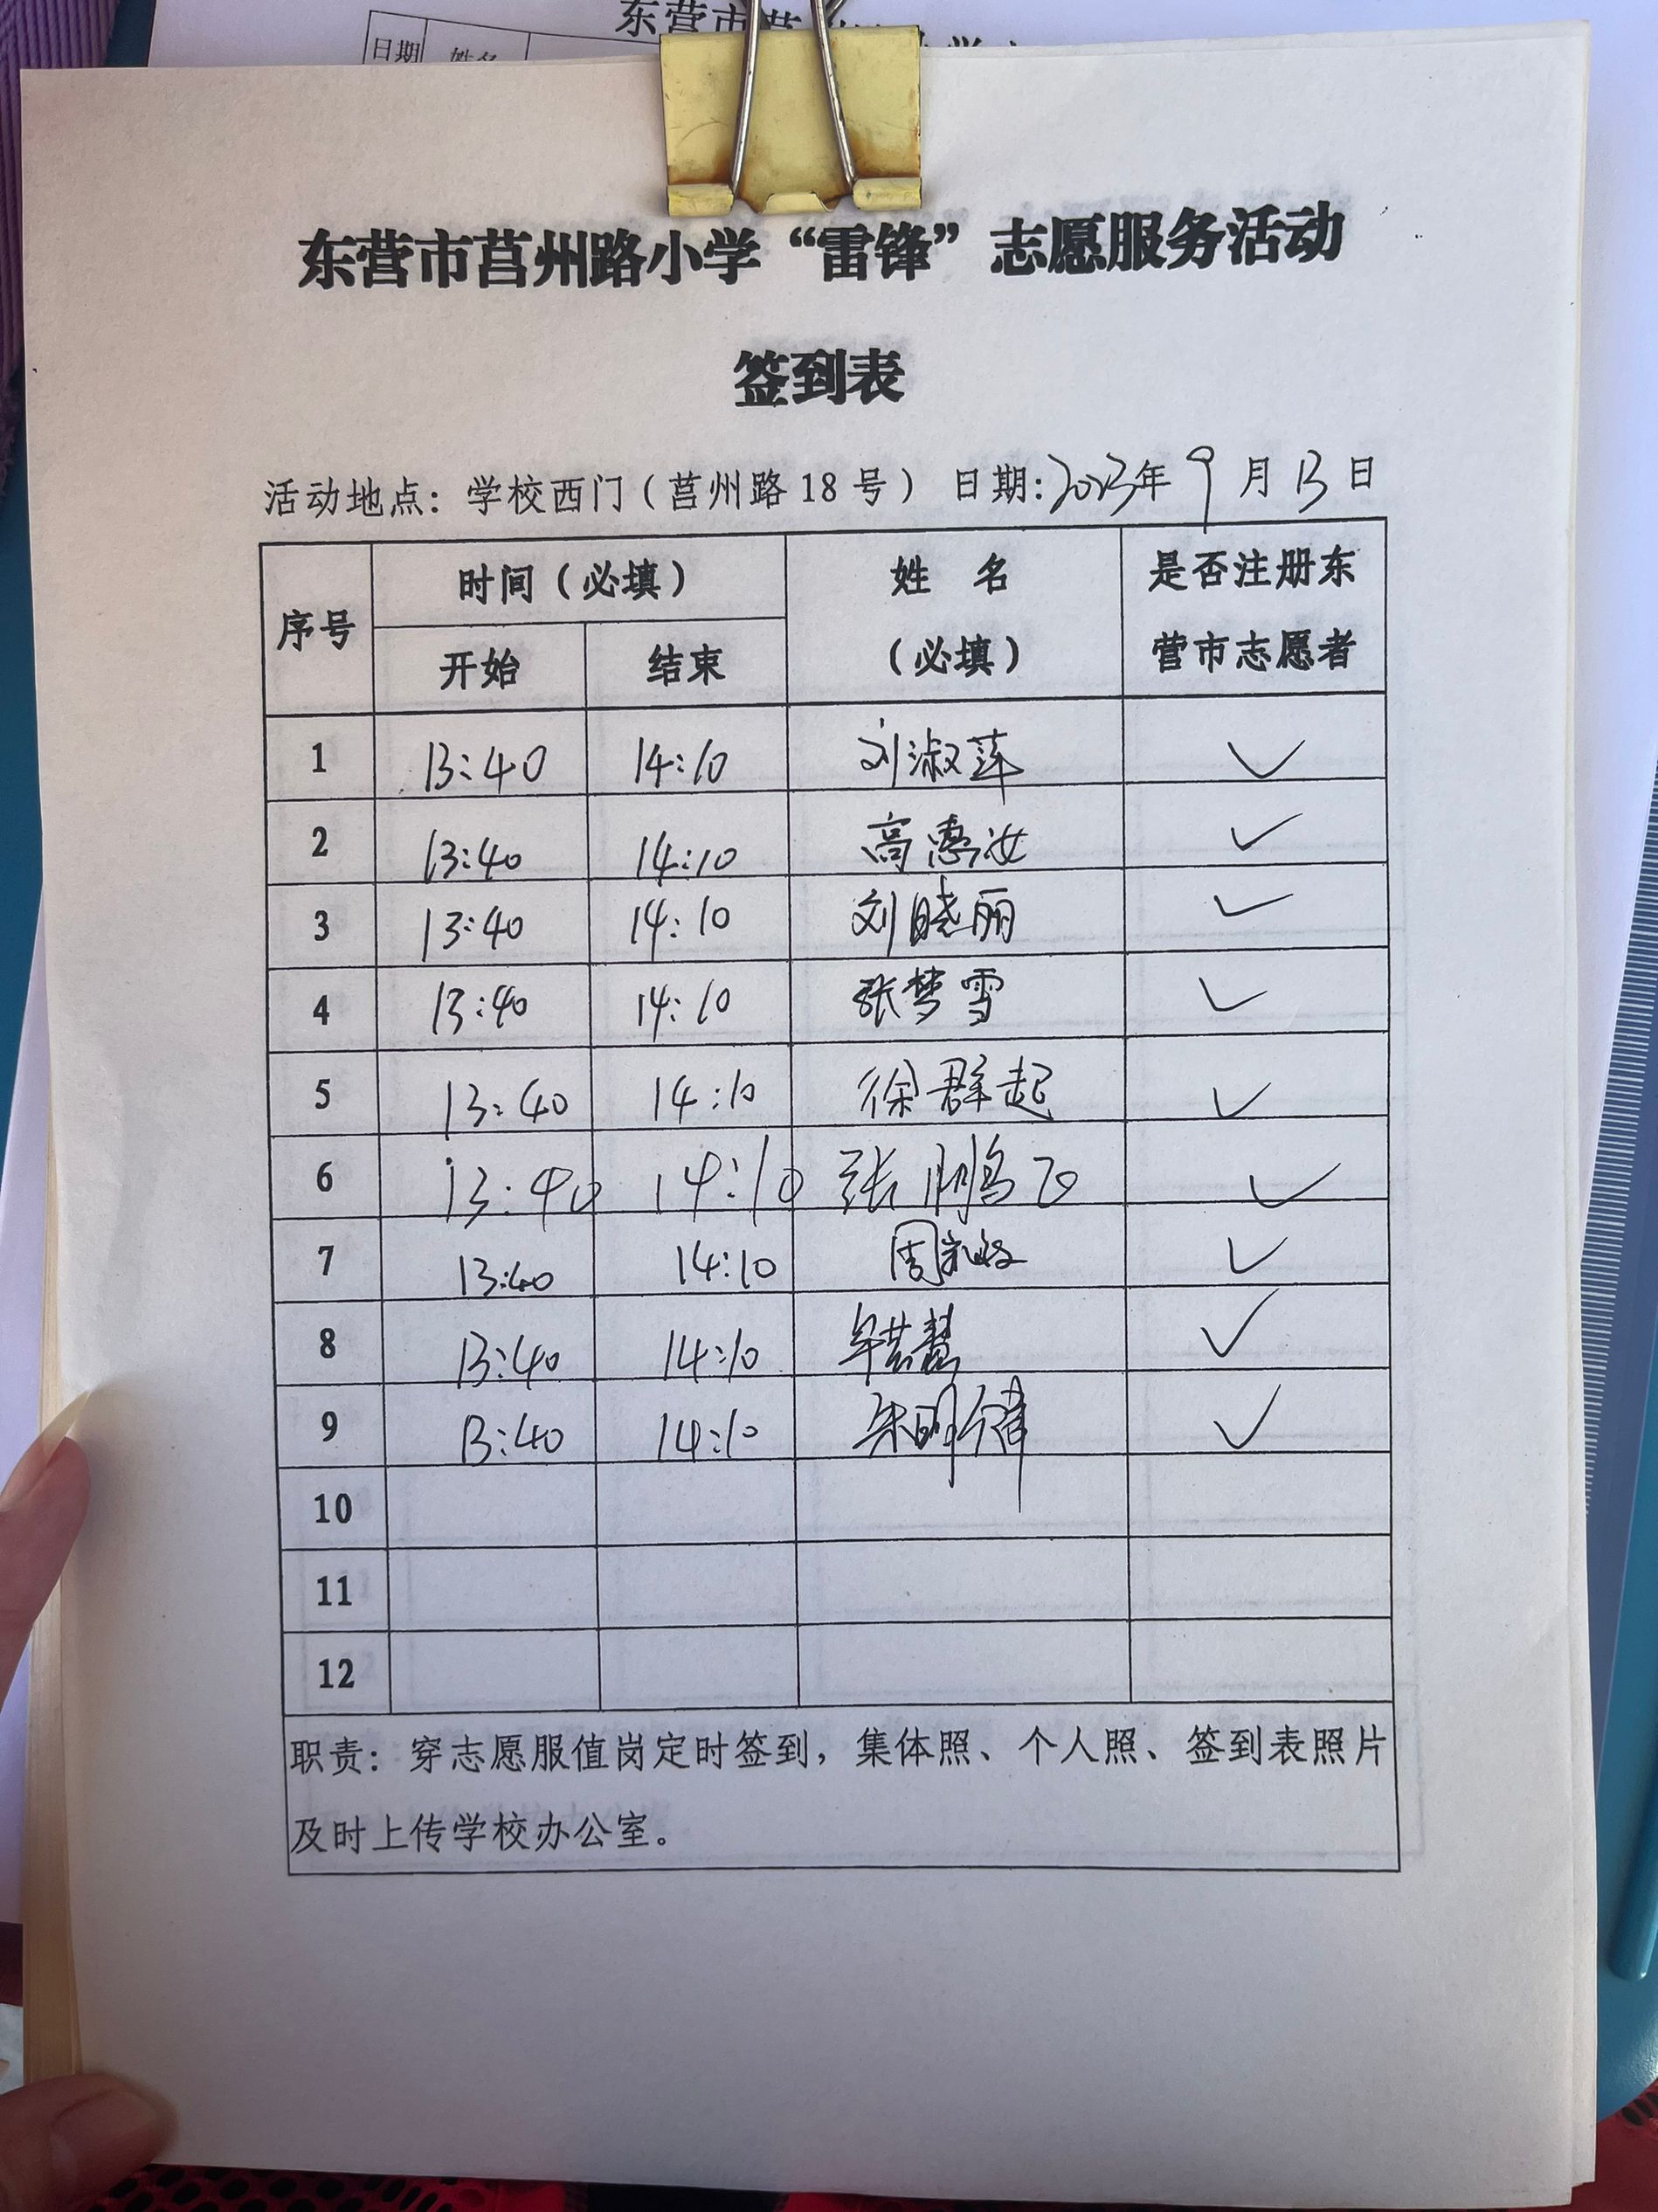 东营市
日期 姓名
东营市莒州路小学“雷锋”志愿服务活动
签到表
活动地点：学校西门（莒州路18号） 日期：2023年9月13日
序号 时间（必填） 姓 名 是否注册东
开始 结束 （必填） 营市志愿者
1 13:40 14:10 刘淑萍 ✓
2 13:40 14:10 高惠汝 ✓
3 13:40 14:10 刘晓丽 ✓
4 13:40 14:10 张梦雪 ✓
5 13:40 14:10 徐群起 ✓
6 13:40 14:10 张鹏飞 ✓
7 13:40 14:10 周 ✓
8 13:40 14:10 ✓
9 13:40 14:10 ✓
10
11
12
职责：穿志愿服值岗定时签到，集体照、个人照、签到表照片
及时上传学校办公室。